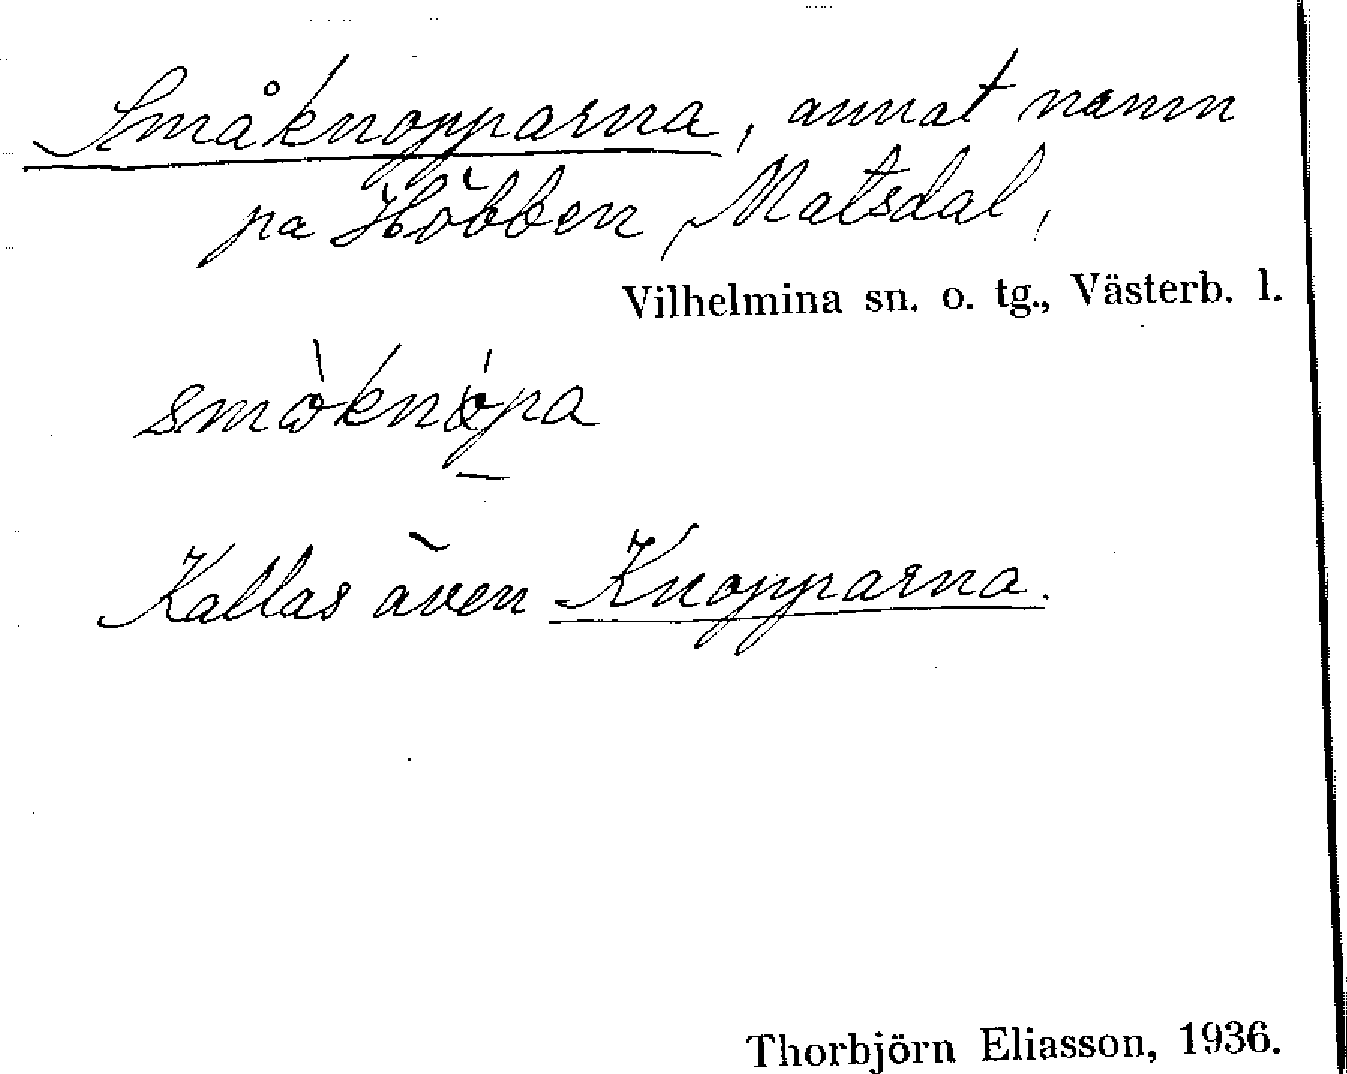 Småknopparna, annat namn
på Höbben, Matsdal,
Vilhelmina sn. o. tg., Västerb. l.
Kallas även Knopparna.
Thorbjörn Eliasson, 1936.